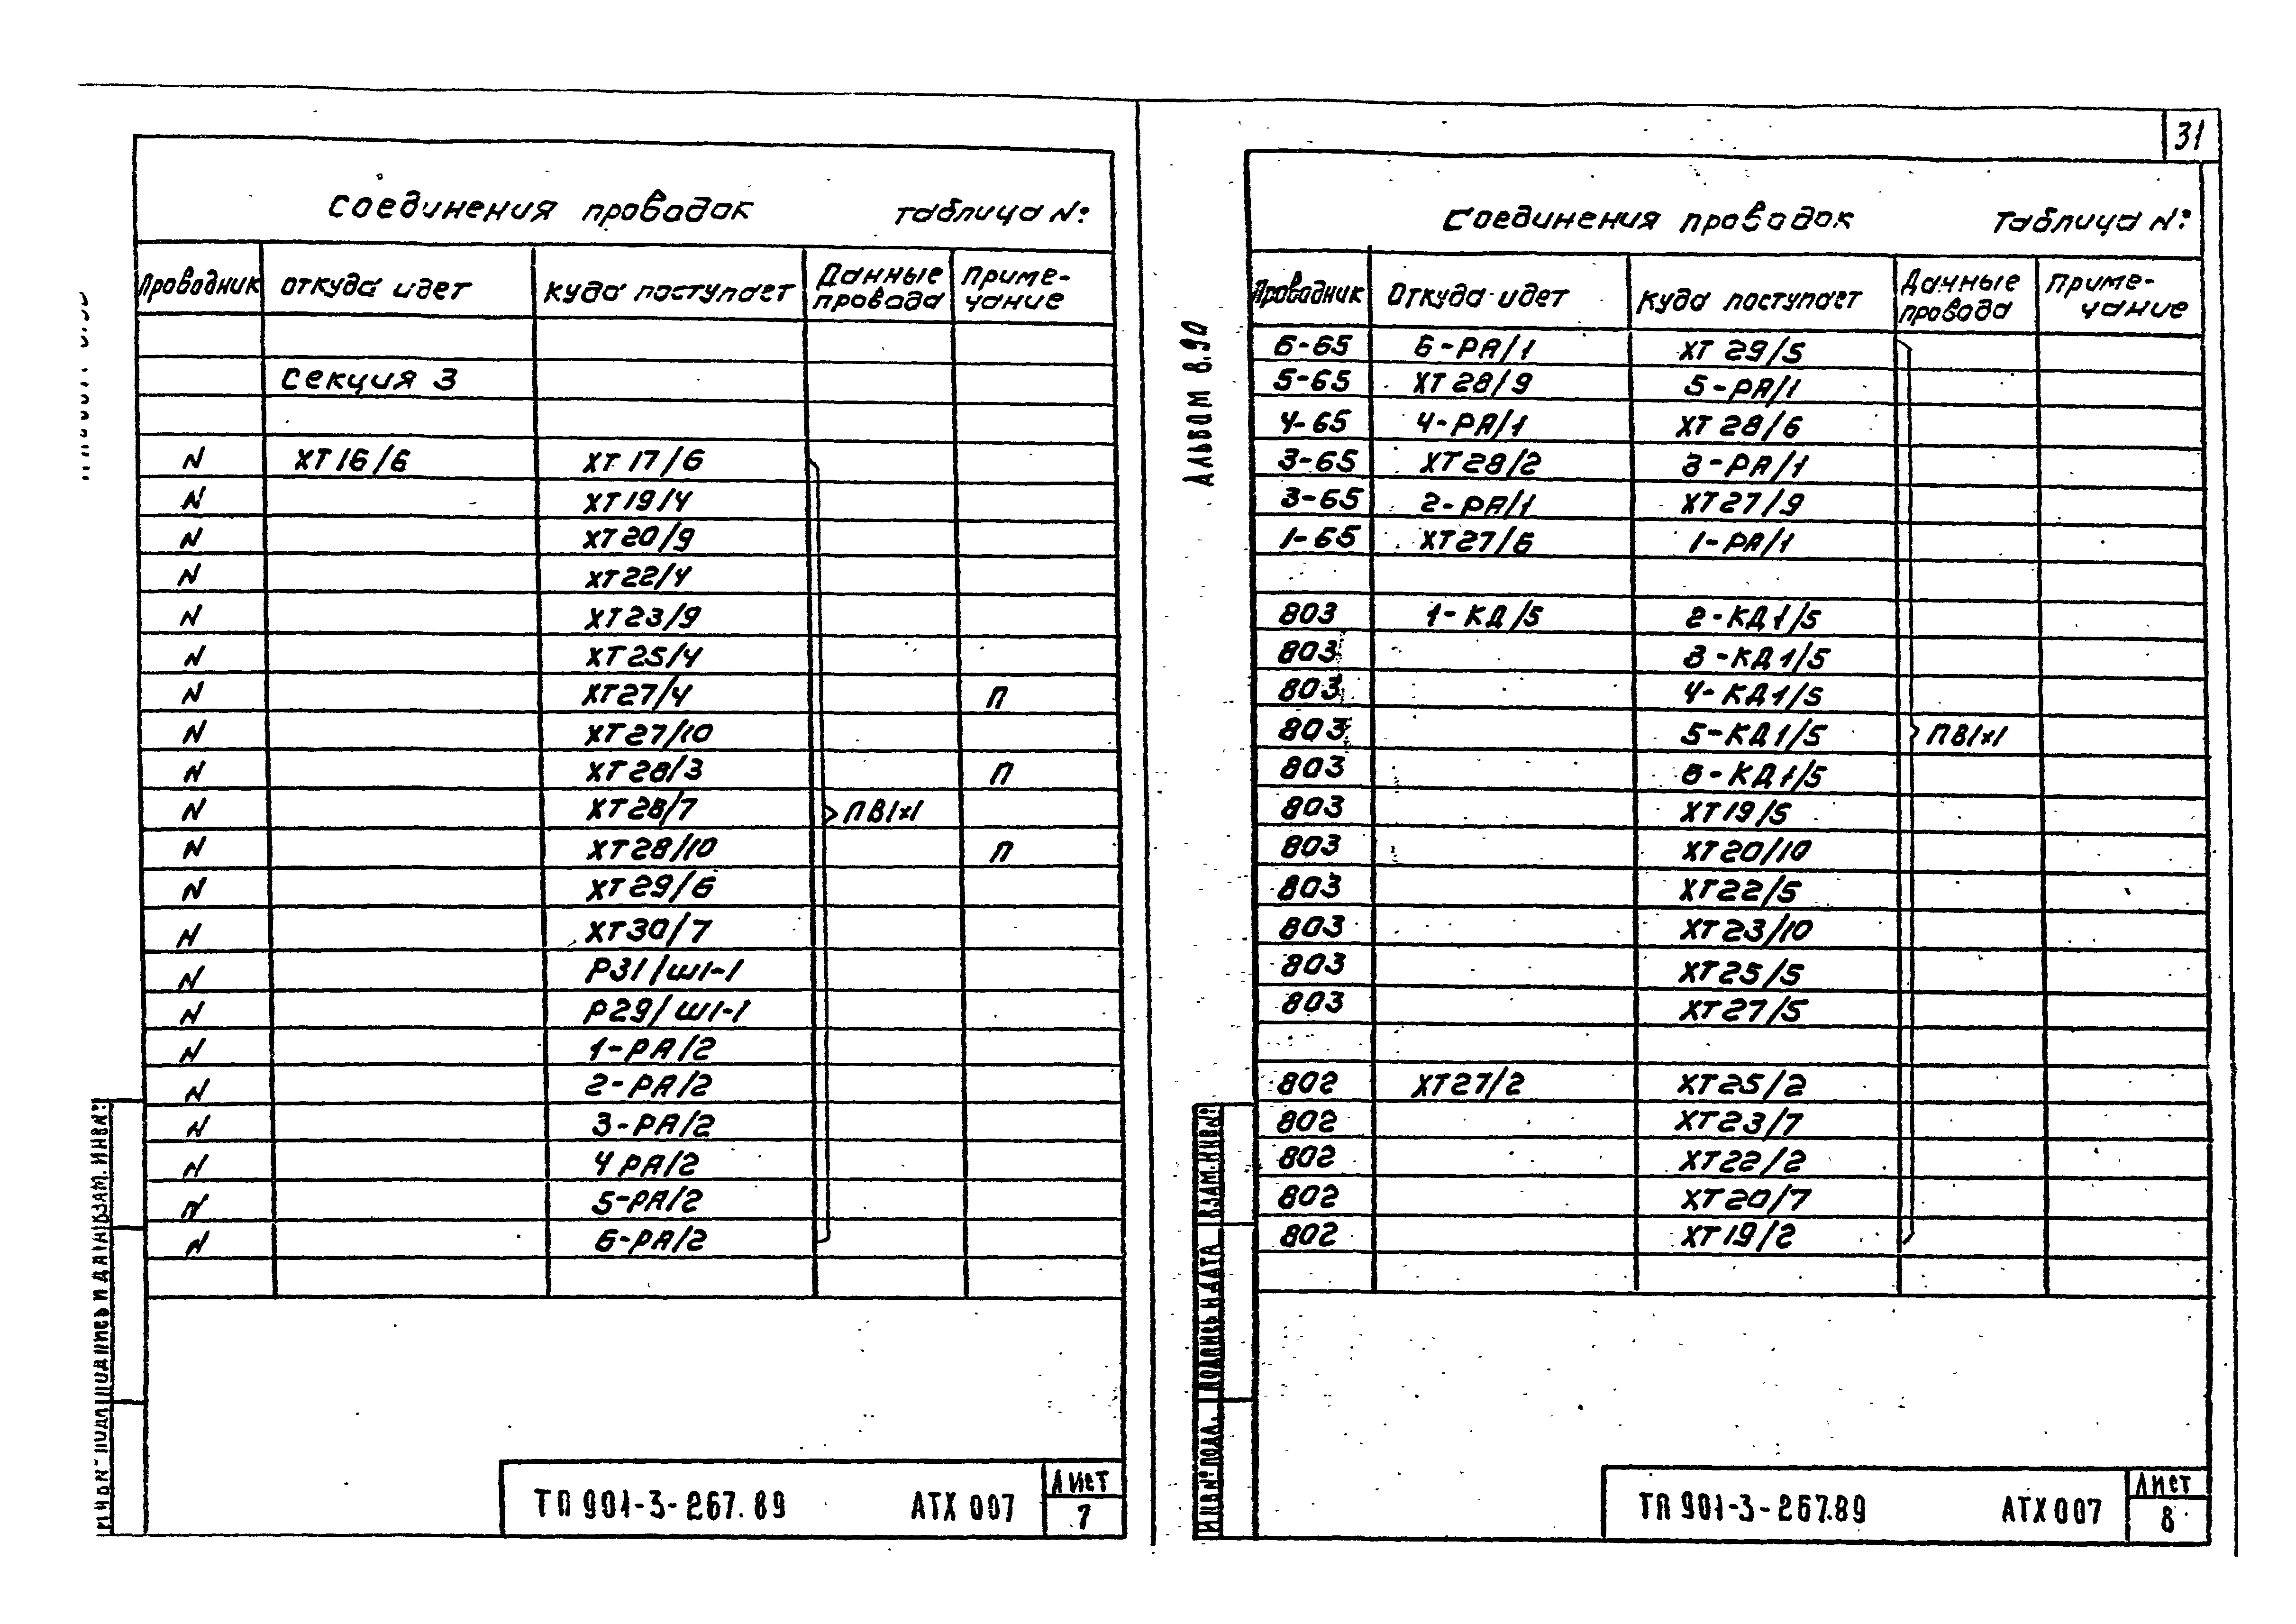 31
Соединения проводок Таблица №:
Проводник Откуда идет Куда поступает Данные провода Приме-чание
Секция 3
N ХТ16/6 ХТ17/6
N ХТ19/4
N ХТ20/9
N ХТ22/4
N ХТ23/9
N ХТ25/4
N ХТ27/4 П
N ХТ27/10
N ХТ28/3 П
N ХТ28/7 ПВ1х1
N ХТ28/10 П
N ХТ29/6
N ХТ30/7
N Р31/Ш1-1
N Р29/Ш1-1
N 1-РА/2
N 2-РА/2
N 3-РА/2
N 4 РА/2
N 5-РА/2
N 6-РА/2
ИНВ № ПОДЛ ПОДПИСЬ И ДАТА ВЗАМ. ИНВ №:
ТП 901-3-267.89 АТХ 007 Лист 7
Альбом 8.90
Соединения проводок Таблица №:
Проводник Откуда идет Куда поступает Данные провода Приме-чание
6-65 6-РА/1 ХТ 29/5
5-65 ХТ28/9 5-РА/1
4-65 4-РА/1 ХТ28/6
3-65 ХТ28/2 3-РА/1
3-65 2-РА/1 ХТ27/9
1-65 ХТ27/6 1-РА/1
803 1-КД/5 2-КД1/5
803 3-КД1/5
803 4-КД1/5
803 5-КД1/5 ПВ1х1
803 6-КД1/5
803 ХТ19/5
803 ХТ20/10
803 ХТ22/5
803 ХТ23/10
803 ХТ25/5
803 ХТ27/5
802 ХТ27/2 ХТ25/2
802 ХТ23/7
802 ХТ22/2
802 ХТ20/7
802 ХТ19/2
ИНВ № ПОДЛ. ПОДПИСЬ И ДАТА ВЗАМ. ИНВ №:
ТП 901-3-267.89 АТХ 007 Лист 8